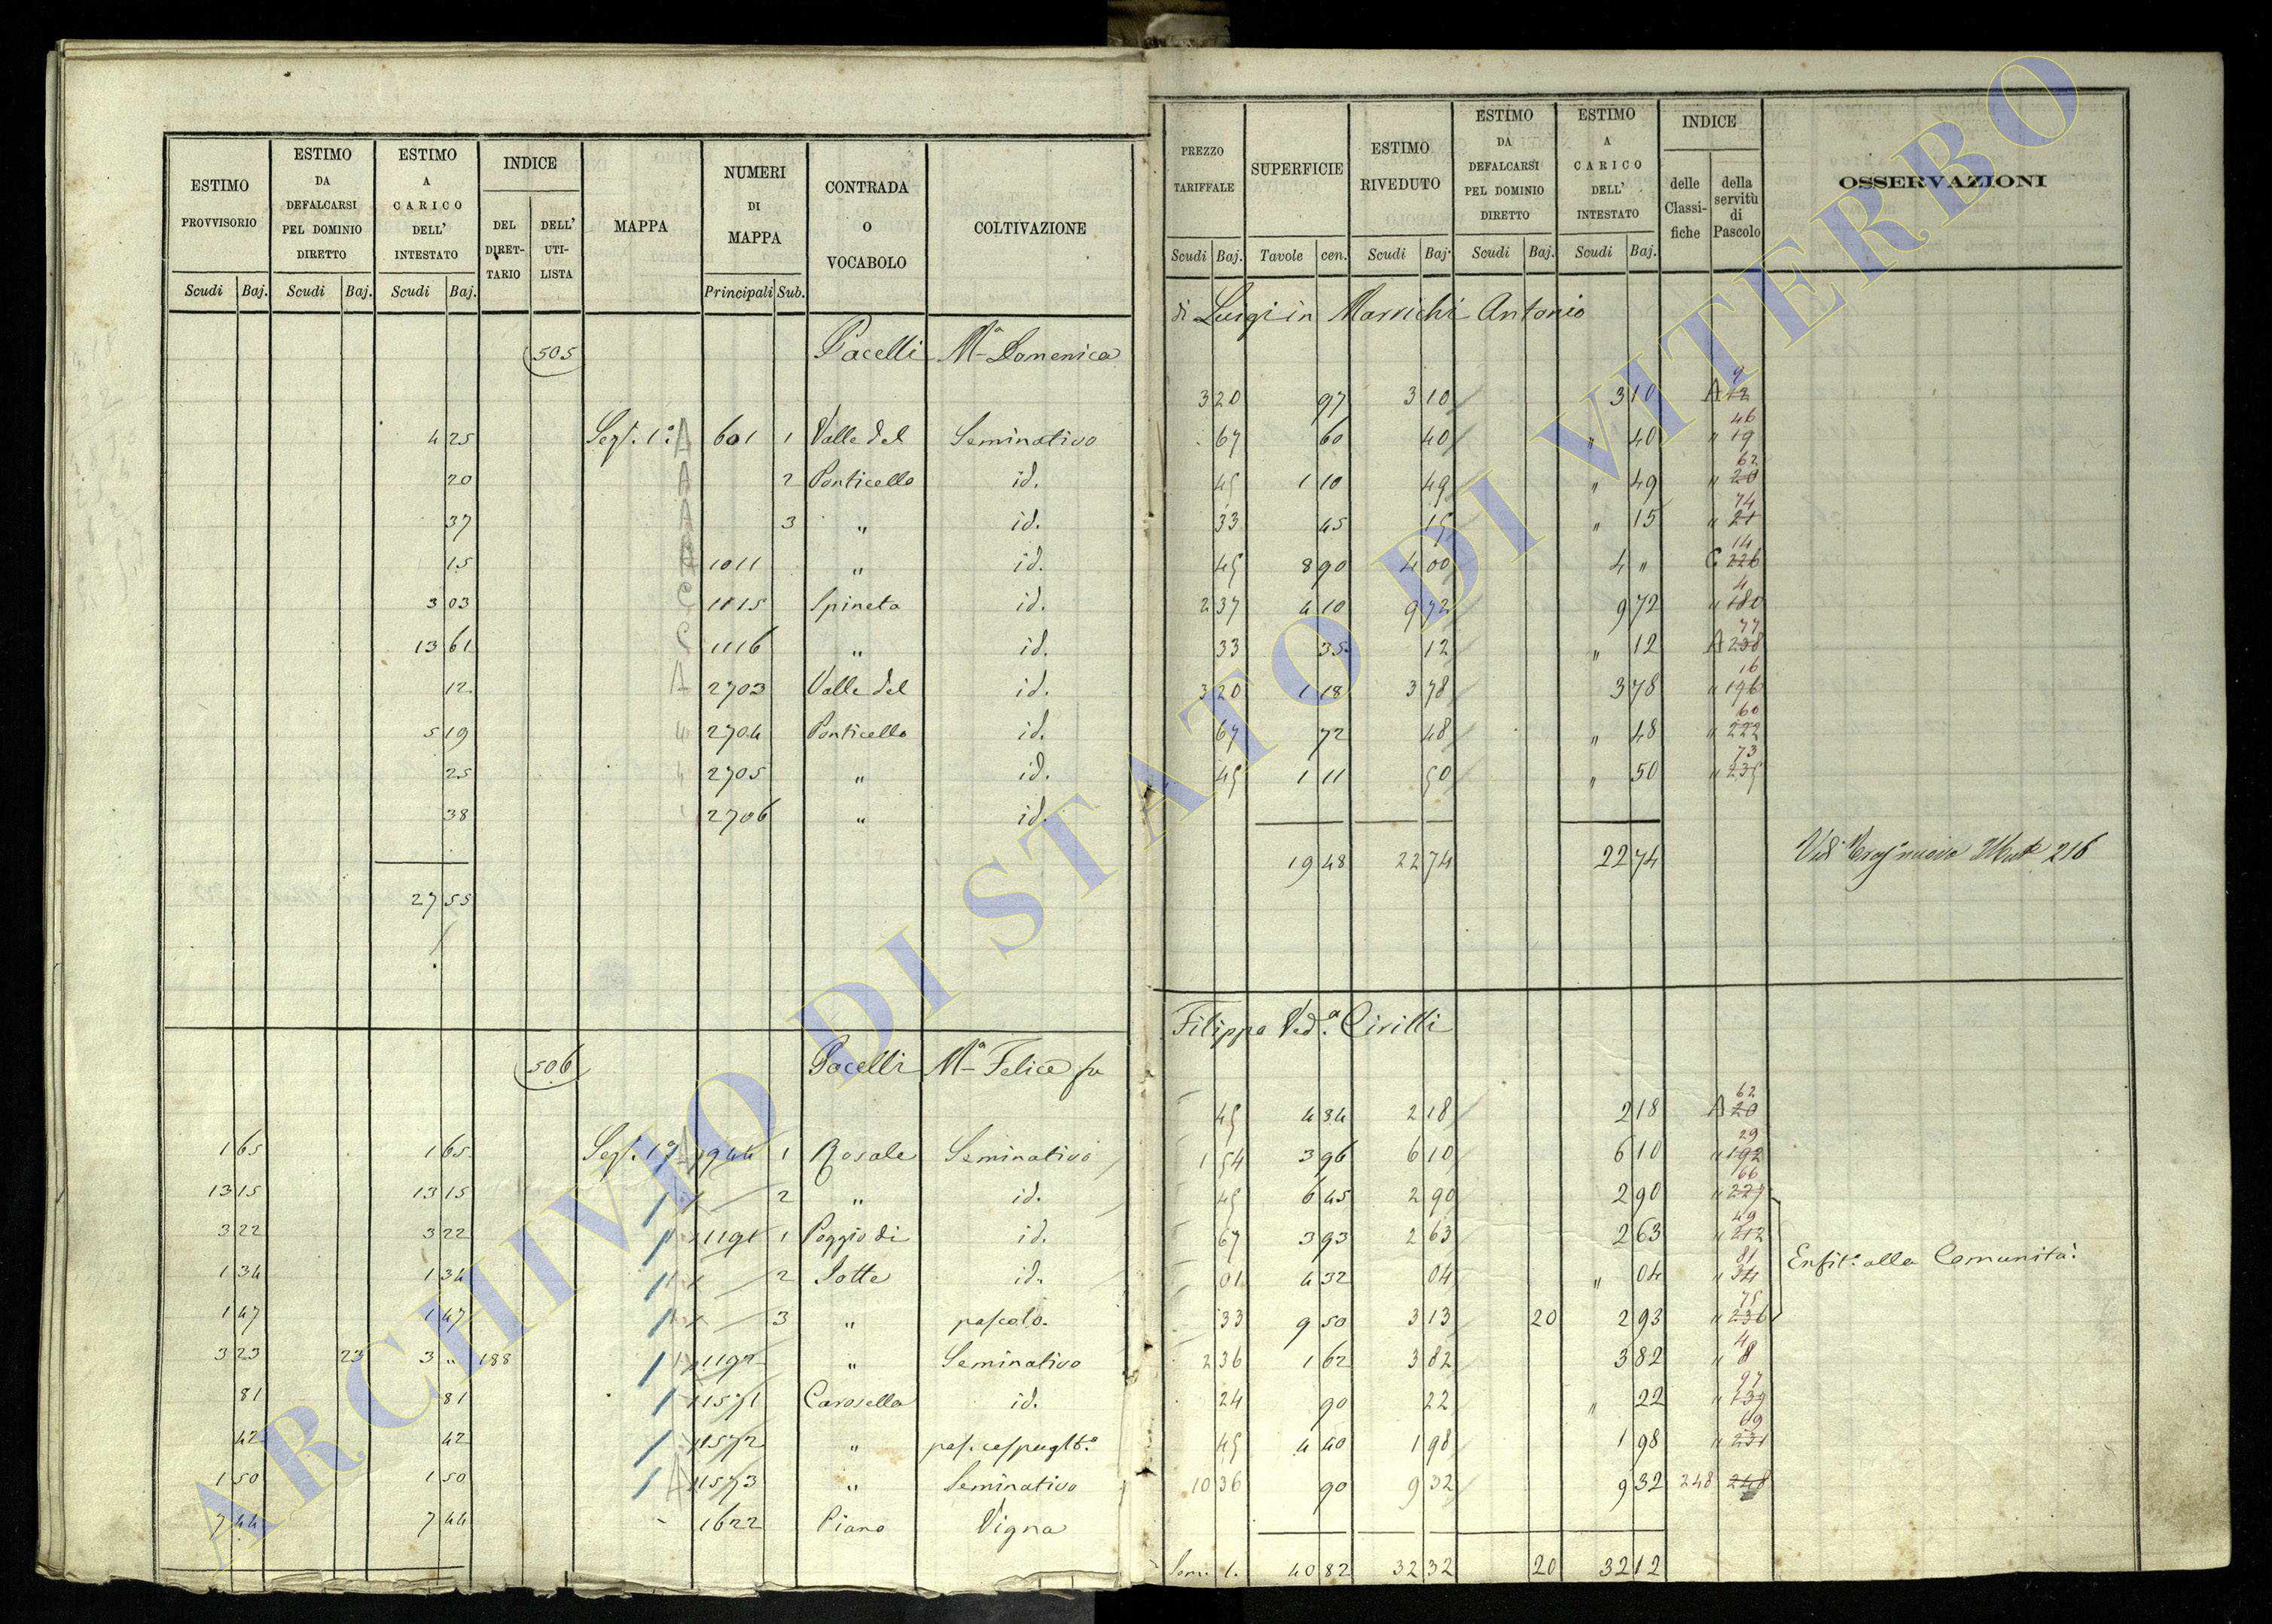 ESTIMO PROVVISORIO
ESTIMO DA DEFALCARSI PEL DOMINIO DIRETTO
ESTIMO A CARICO DELL' INTESTATO
INDICE
DEL DIRET-TARIO
DELL' UTI-LISTA
MAPPA
NUMERI DI MAPPA
CONTRADA O VOCABOLO
COLTIVAZIONE
Scudi Baj. Scudi Baj. Scudi Baj. Principali Sub.
505 Pacelli Mª Domenica
4 25 Sez. 1ª A 601 1 Valle del Seminativo
20 A 2 Ponticello id.
37 A 3 " id.
15 A 1011 " id.
3 03 C 1115 Spineta id.
13 61 C 1116 " id.
12 A 2703 Valle del id.
5 19 " 2704 Ponticello id.
25 " 2705 " id.
38 " 2706 " id.
27 55
506 Pacelli Mª Felice fu
1 65 1 65 Sez. 1ª A 944 1 Rosale Seminativo
13 15 13 15 2 " id.
3 22 3 22 1191 1 Poggio di id.
1 34 1 34 2 Sotte id.
1 47 1 47 3 " pascolo.
3 23 23 3 " 188 1192 " Seminativo
81 81 1571 Carosella id.
42 42 1572 " pas. cespuglto.
1 50 1 50 A 1573 " Seminativo
7 44 7 44 1622 Piano Vigna
PREZZO TARIFFALE
SUPERFICIE
ESTIMO RIVEDUTO
ESTIMO DA DEFALCARSI PEL DOMINIO DIRETTO
ESTIMO A CARICO DELL' INTESTATO
INDICE
delle Classi-fiche
della servitù di Pascolo
OSSERVAZIONI
Scudi Baj. Tavole cen. Scudi Baj. Scudi Baj. Scudi Baj.
di Luigi in Marrichi Antonio
3 20 97 3 10 3 10 A 12 9
67 60 40 " 40 " 19 46
45 1 10 49 " 49 " 20 62
33 45 15 " 15 " 21 74
45 8 90 4 00 4 " C 226 14
2 37 4 10 9 72 9 72 " 180 4
33 35 12 " 12 A 238 77
3 20 1 18 3 78 3 78 " 196 16
67 72 48 " 48 " 222 60
45 1 11 50 " 50 " 235 73
19 48 22 74 22 74 216
Filippo Ved.ª Cirilli
45 4 84 2 18 2 18 A 20 62
1 54 3 96 6 10 6 10 " 192 29
45 6 45 2 90 2 90 " 227 66
67 3 93 2 63 2 63 " 212 49
01 4 32 04 " 04 " 34 81
33 9 50 3 13 20 2 93 " 236 75
Enfit.ª alla Comunità.
2 36 1 62 3 82 3 82 " 8 4
24 90 22 " 22 " 139 97
45 4 40 1 98 1 98 " 231 69
10 36 90 9 32 9 32 248 248
40 82 32 32 20 32 12
ARCHIVIO DI STATO DI VITERBO